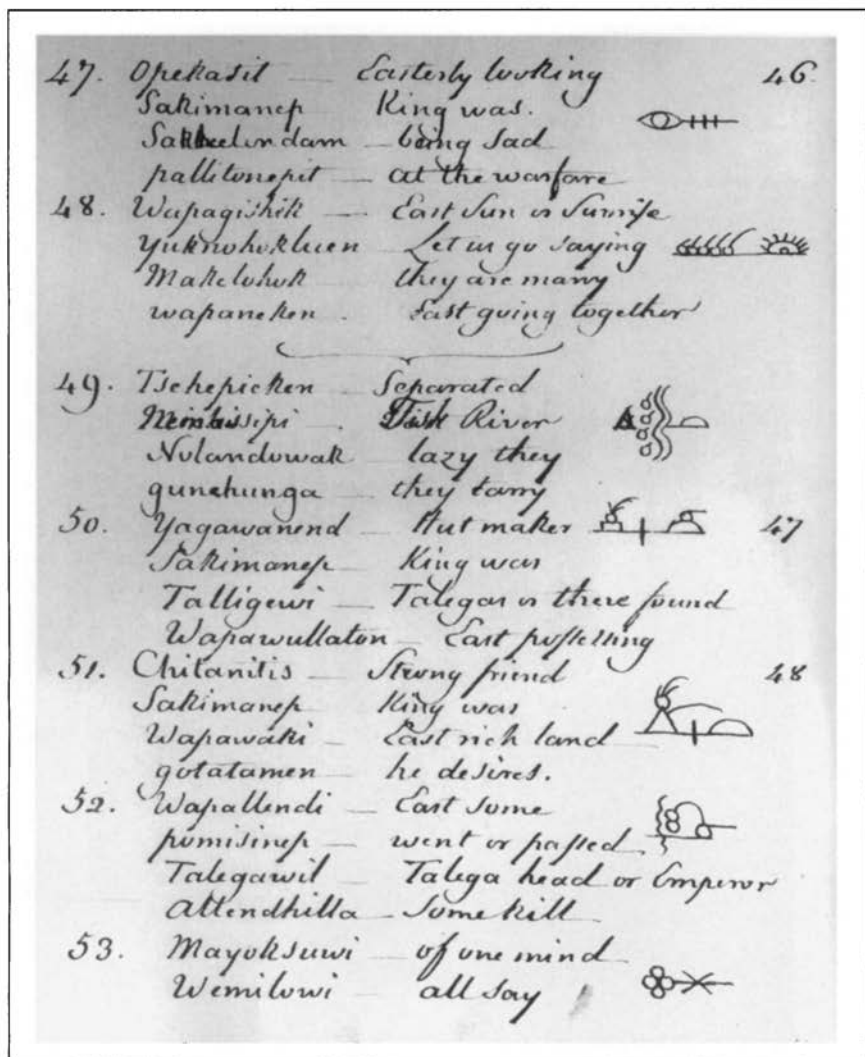 47. Opekasit — Easterly looking 46.
Sakimanep King was.
Sakhelendam — being sad
pallitonepit — at the warfare
48. Wapagishik — East Sun or Sunrise
Yuknohokluen — Let us go saying
Makelohok they are many
wapaneken . East going together
49. Tschepieken — Separated
. River
Nolandowak — lazy they
gunehunga — they tarry
50. Yagawanend — Hut maker 47
Sakimanep — King was
Talligewi — Talegas or there found
Wapawullaton — East possessing
51. Chitanitis — Strong friend 48
Sakimanep King was
Wapawaki — East rich land
gotatamen — he desires.
52. Wapallendi — East some
pomisinep — went or passed
Talegawil — Talega head or Emperor
Attendhilla — Some kill
53. Mayoksuwi — of one mind
Wemilowi — all say